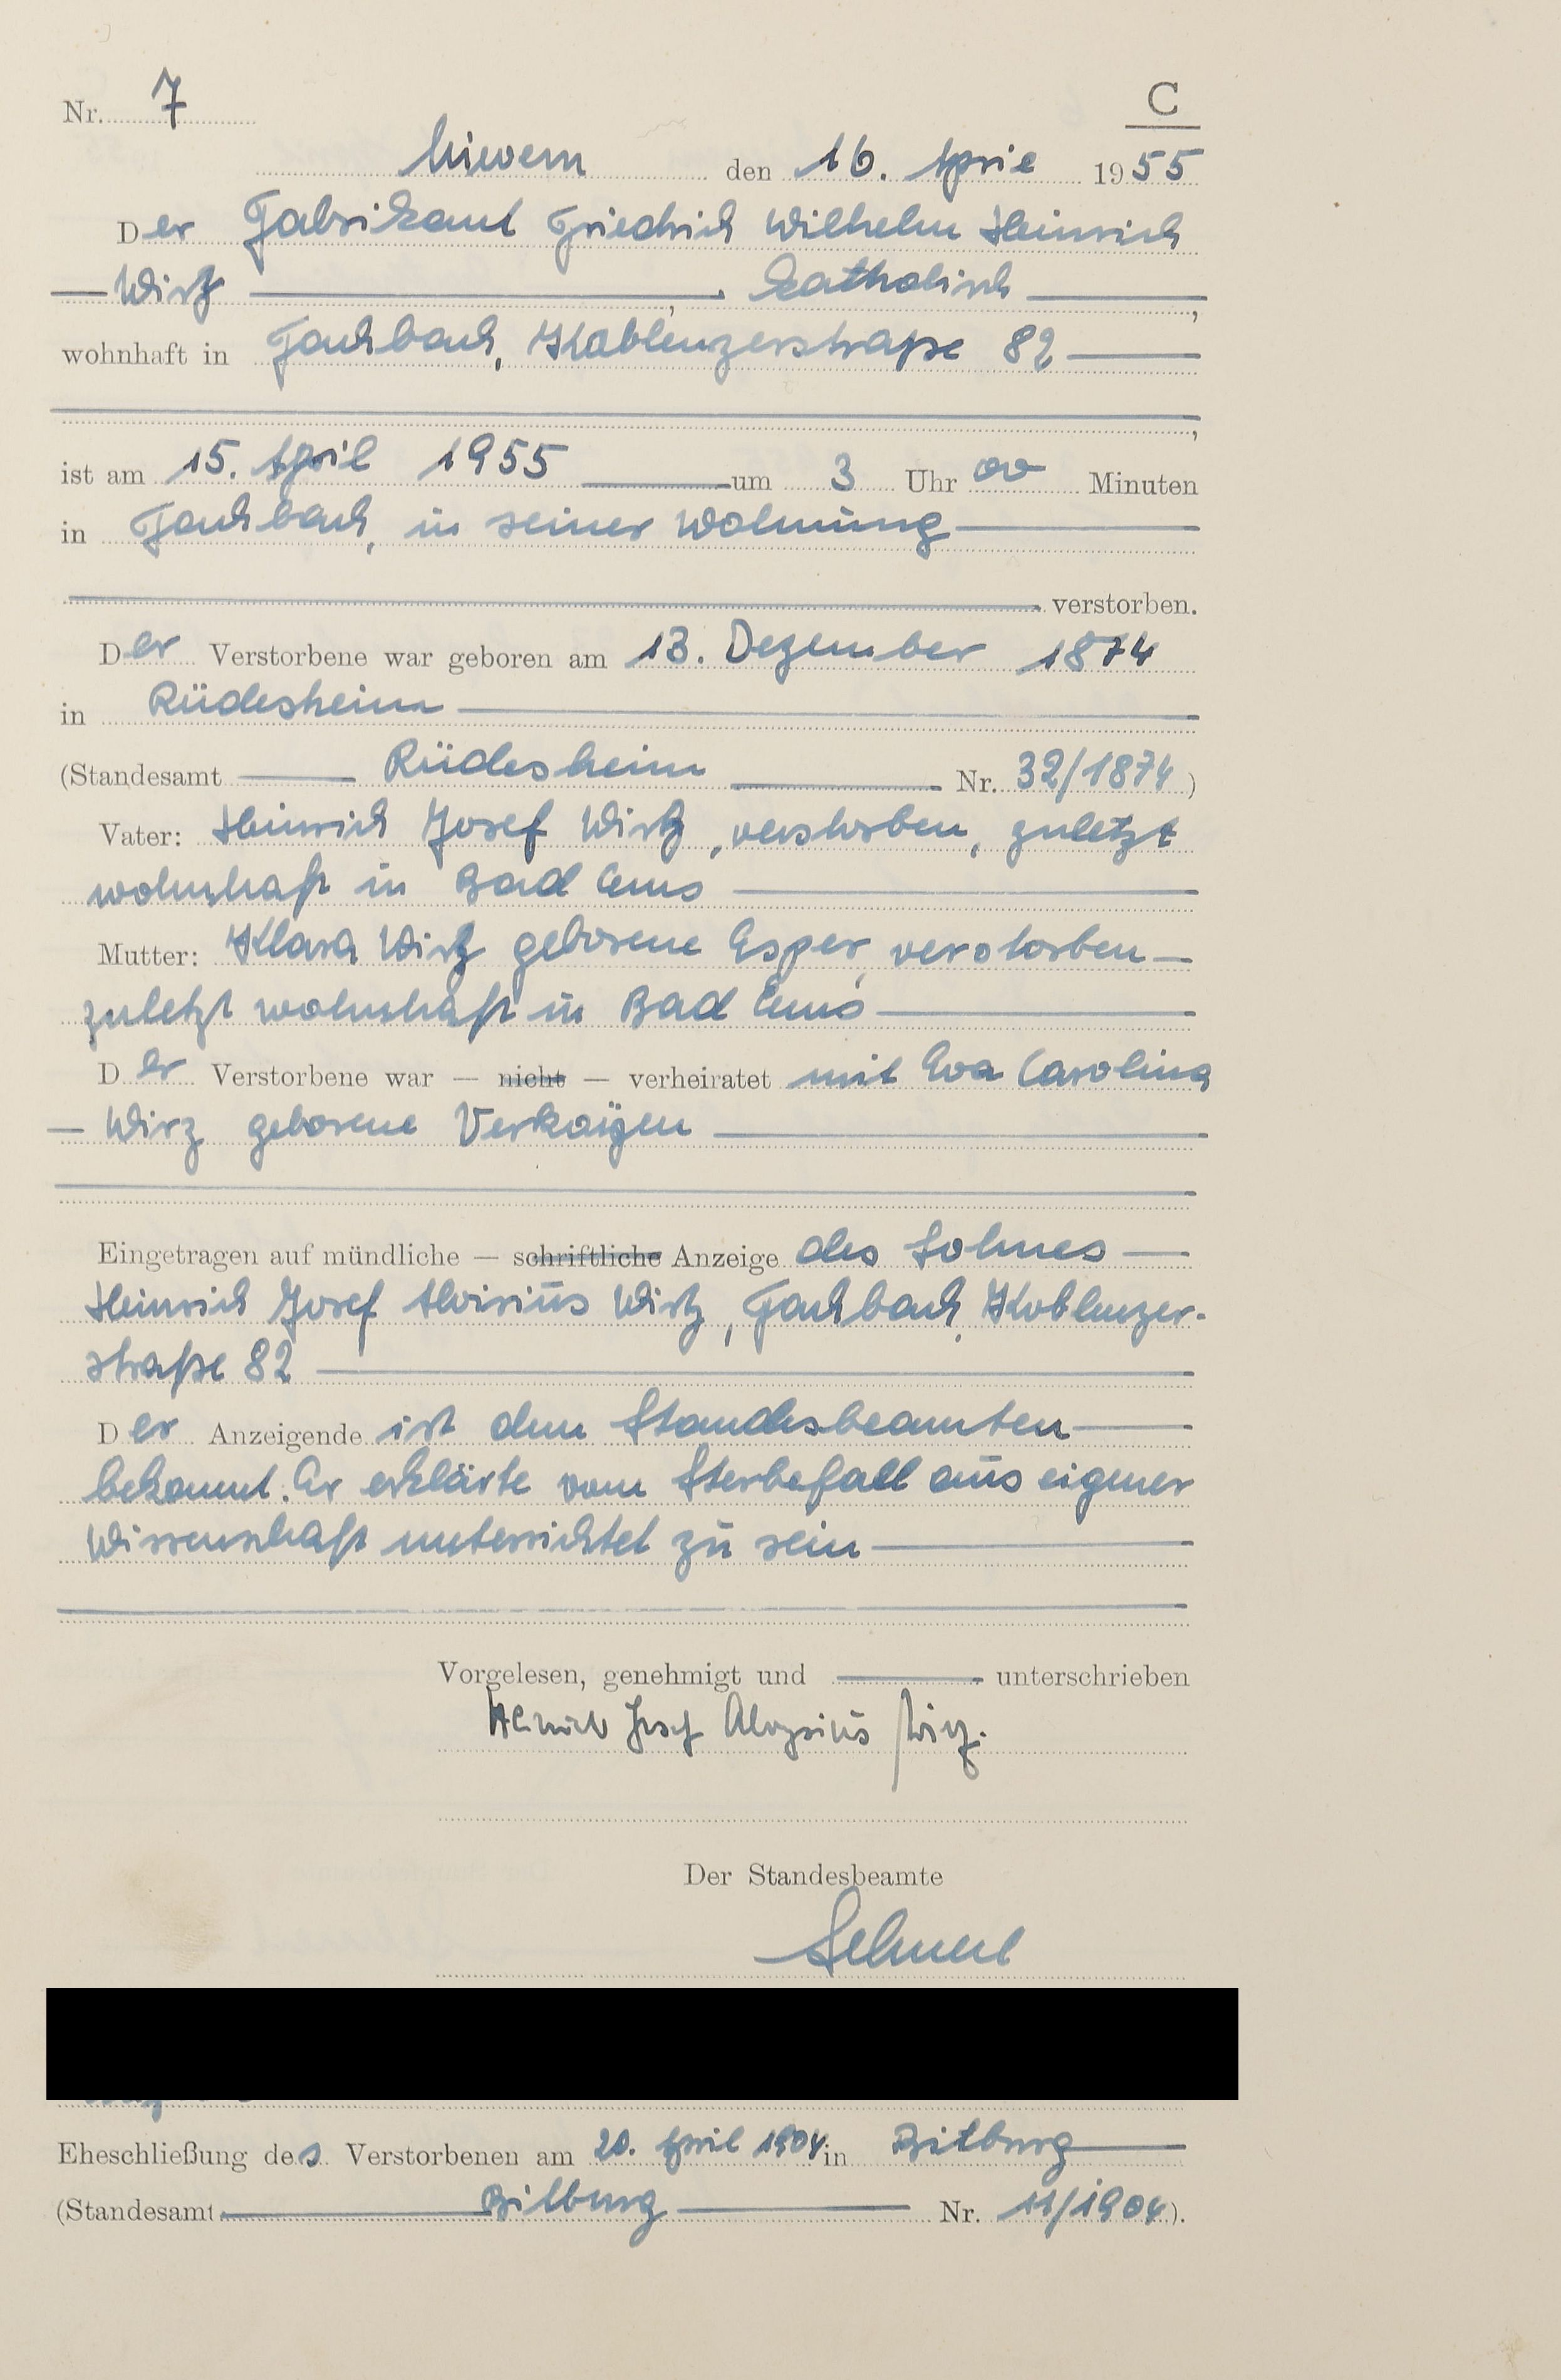 Nr. 7
C
Miewern den 16. April 1955
Der Fabrikant Friedrich Wilhelm Heinrich
Wirtz, katholisch,
wohnhaft in Fachbach, Koblenzerstraße 82
,
ist am 15. April 1955 um 3 Uhr 00 Minuten
in Fachbach, in seiner Wohnung
verstorben.
Der Verstorbene war geboren am 13. Dezember 1874
in Rüdesheim
(Standesamt Rüdesheim Nr. 32/1874)
Vater: Heinrich Josef Wirtz, verstorben, zuletzt
wohnhaft in Bad Ems
Mutter: Klara Wirtz geborene Esper, verstorben
zuletzt wohnhaft in Bad Ems
Der Verstorbene war — nicht — verheiratet mit Eva Carolina
Wirz geborene Verkoÿen
Eingetragen auf mündliche — schriftliche Anzeige des Sohnes
Heinrich Josef Aloisius Wirtz, Fachbach, Koblenzer-
straße 82
Der Anzeigende ist dem Standesbeamten
bekannt. Er erklärte vom Sterbefall aus eigener
Wissenschaft unterrichtet zu sein
Vorgelesen, genehmigt und unterschrieben
Heinrich Josef Aloysius Wirz.
Der Standesbeamte
Eheschließung des Verstorbenen am 20. April 1904 in Bitburg
(Standesamt Bitburg Nr. 11/1904).